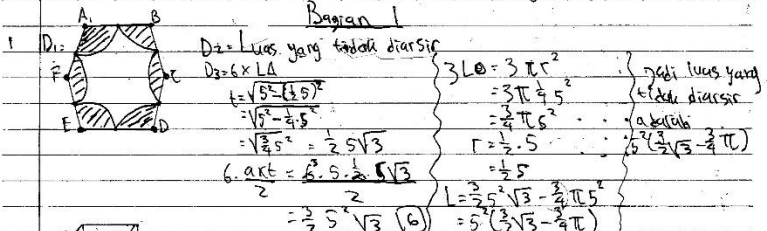 Bagian 1
1
D1 =
A B
F C
E D
D2 = Luas yang tidak diarsir
D3 = 6 × LΔ
t = √5² - (½5)²
= √5² - ¼5²
= √¾5² = ½5√3
6. axt / 2 = 6³. 5. ½. 5√3 / 2
= 3/2 5² √3 (6)
3LO = 3πr²
= 3π¼5²
= ¾π5²
r = ½.5
= ½5
L = 3/2 5²√3 - ¾π5²
= 5²(3/2√3 - ¾π)
Jadi luas yang
tidak diarsir
adalah
5²(3/2√3 - ¾π)